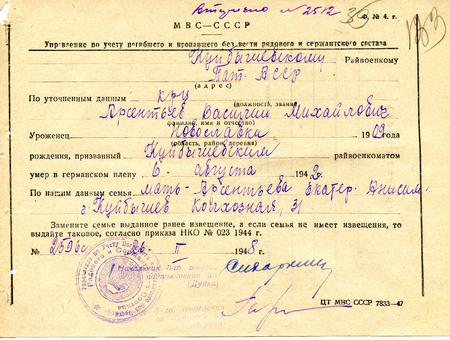 Вступило № 2512
Ф. № 4. г.
МВС—СССР
Управление по учету погибшего и пропавшего без вести рядового и сержантского состава
Куйбышевскому Райвоенкому
Тат. АССР
(адрес)
По уточненным данным кр-ц
(должность, звание)
Арсентьев Василий Михайлович
фамилия, имя и отчество)
Уроженец Новославки 1909 года
(область, район, деревня)
рождения, призванный Куйбышевским райвоенкоматом
умер в германском плену 6 августа 1942 г.
По нашим данным семья мать-Арсентьева Екатер. Анисим.
г. Куйбышев Колхозная, 31
Замените семье выданное ранее извещение, а если семья не имеет извещения, то выдайте
таковое, согласно приказа НКО № 023 1944 г.
№ 2506с 26 II 1948 г.
ЦТ МВС СССР 7833—47